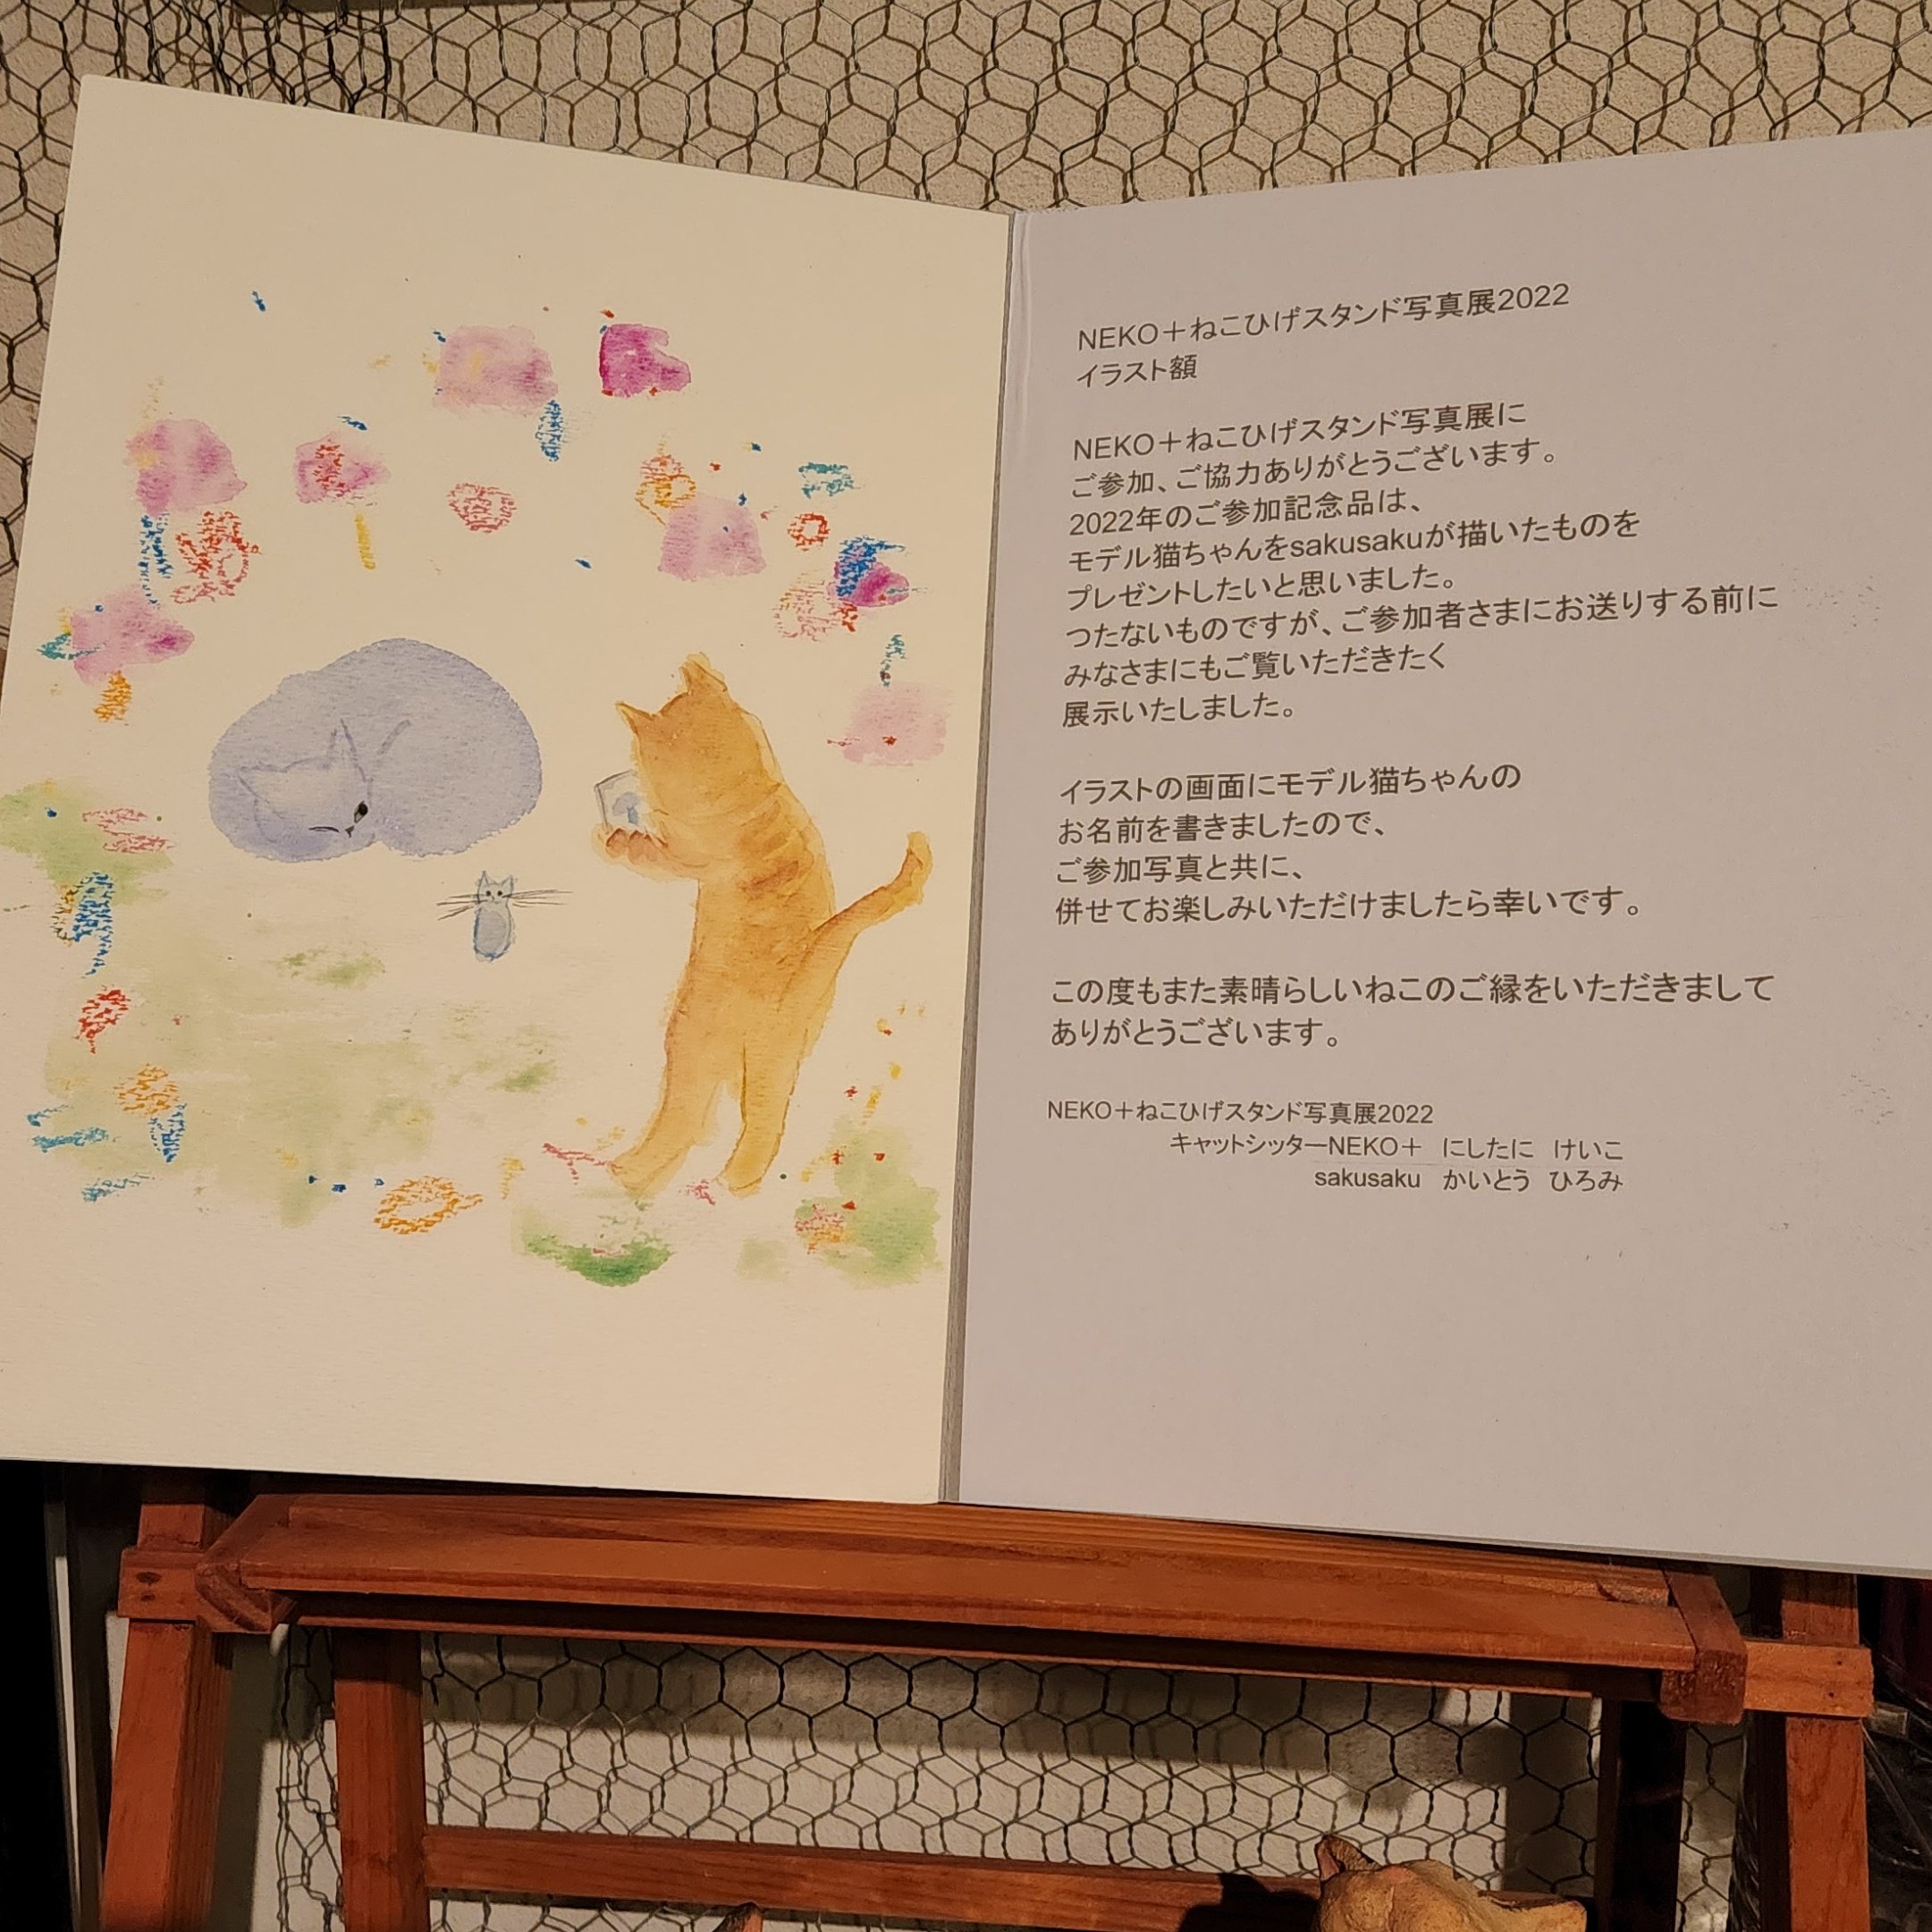 NEKO＋ねこひげスタンド写真展2022
イラスト額
NEKO＋ねこひげスタンド写真展に
ご参加、ご協力ありがとうございます。
2022年のご参加記念品は、
モデル猫ちゃんをsakusakuが描いたものを
プレゼントしたいと思いました。
つたないものですが、ご参加者さまにお送りする前に
みなさまにもご覧いただきたく
展示いたしました。
イラストの画面にモデル猫ちゃんの
お名前を書きましたので、
ご参加写真と共に、
併せてお楽しみいただけましたら幸いです。
この度もまた素晴らしいねこのご縁をいただきまして
ありがとうございます。
NEKO＋ねこひげスタンド写真展2022
キャットシッターNEKO＋　にしたに　けいこ
sakusaku　かいとう　ひろみ